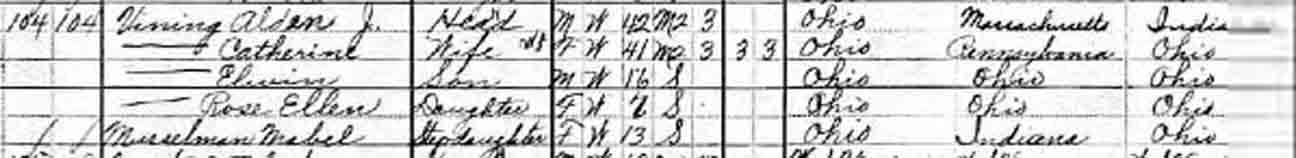 104 104 Vining Alden J. Head M W 42 M2 3 Ohio Massachusetts India
— Catherine Wife F W 41 M2 3 3 3 Ohio Pennsylvania Ohio
— Elwin Son M W 16 S Ohio Ohio Ohio
— Rose Ellen Daughter F W S Ohio Ohio Ohio
Musselman Mabel Stepdaughter F W 13 S Ohio Indiana Ohio